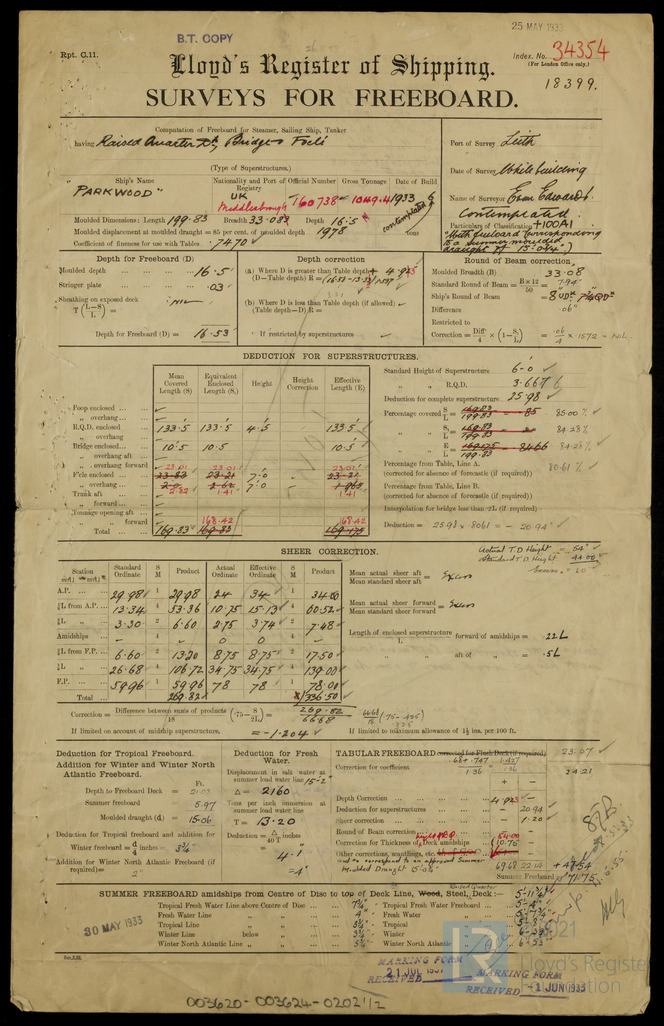 25 MAY 1933
B.T. COPY
Rpt. C.11.
Index. No. 34354
(For London Office only.)
18399.
Lloyd's Register of Shipping.
SURVEYS FOR FREEBOARD.
Computation of Freeboard for Steamer, Sailing Ship, Tanker
having Raised Quarter Dk, Bridge & Focle
(Type of Superstructures.)
Port of Survey Leith
Date of Survey While building
Name of Surveyor Evan Edwards
Contemplated
Particulars of Classification +100A1
"With freeboard corresponding
to a summer moulded
draught of 15'-0¾")
Ship's Name
"PARKWOOD"
Nationality and Port of Registry
UK
Middlesbrough
Official Number
160738
Gross Tonnage
1049.41
Date of Build
1933
contemplated
Moulded Dimensions: Length 199.83 Breadth 33.083 Depth 16.5
Moulded displacement at moulded draught = 85 per cent. of moulded depth 1978 tons
Coefficient of fineness for use with Tables .7470
Depth for Freeboard (D)
Moulded depth 16.5
Stringer plate .03
Sheathing on exposed deck Nil
T (L-S / L)
Depth for Freeboard (D) = 16.53
Depth correction
(a) Where D is greater than Table depth
(D—Table depth) R =
(b) Where D is less than Table depth (if allowed)
(Table depth—D) R =
If restricted by superstructures
Round of Beam correction
Moulded Breadth (B) 33.08
Standard Round of Beam = B × 12 / 50 = 7.94
Ship's Round of Beam =
Difference .06"
Restricted to
Correction = Diff. / 4 × (1 - S₁ / L) = .06 / 4 × .1572 = NIL
DEDUCTION FOR SUPERSTRUCTURES.
Mean Covered Length (S) Equivalent Enclosed Length (S₁) Height Height Correction Effective Length (E)
Poop enclosed
„ overhang
R.Q.D. enclosed 133.5 133.5 4.5 133.5
„ overhang
Bridge enclosed 10.5 10.5 10.5
„ overhang aft
„ overhang forward
F'cle enclosed 23.01 23.01 7.0 23.01
„ overhang 2.82 1.41 7.0 1.41
Trunk aft
„ forward
Tonnage opening aft
„ forward
Total 169.83 168.42 168.42
Standard Height of Superstructure 6.0
„ „ R.Q.D. 3.667
Deduction for complete superstructure 25.98
Percentage covered S / L = 85.00 %
„ „ S₁ / L = 84.28 %
„ „ E / L = 84.28 %
Percentage from Table, Line A.
(corrected for absence of forecastle (if required)) 80.61 %
Percentage from Table, Line B.
(corrected for absence of forecastle (if required))
Interpolation for bridge less than ·2L (if required)
Deduction = 25.98 × .8061 = - 20.94
Actual T.D Height = 54"
Standard T.D Height = 44.00
SHEER CORRECTION.
Station Standard Ordinate S M Product Actual Ordinate Effective Ordinate S M Product
A.P. 29.98 1 29.98 24 34 1 34.00
⅙L from A.P. 13.34 4 53.36 10.75 15.13 4 60.52
⅓L „ 3.30 2 6.60 2.75 3.74 2 7.48
Amidships - 4 - 0 0 4 -
⅓L from F.P. 6.60 2 13.20 8.75 8.75 2 17.50
⅙L „ 26.68 4 106.72 34.75 34.75 4 139.00
F.P. 59.96 1 59.96 78 78 1 78.00
Total 269.82 336.50
269.82
66.68
Mean actual sheer aft / Mean standard sheer aft = Excess
Mean actual sheer forward / Mean standard sheer forward = Excess
Length of enclosed superstructure forward of amidships = .22L
L „ aft of „ = .5L
Correction = Difference between sums of products / 18 (·75 - S / 2L) = 66.68 / 18 (.75-.425)
= - 1.204
If limited on account of midship superstructure.
If limited to maximum allowance of 1½ ins. per 100 ft.
Deduction for Tropical Freeboard.
Addition for Winter and Winter North Atlantic Freeboard.
Ft.
Depth to Freeboard Deck = 21.03
Summer freeboard 5.97
Moulded draught (d) = 15.06
Deduction for Tropical freeboard and addition for
Winter freeboard = d / 4 inches = 3¾"
Addition for Winter North Atlantic Freeboard (if required) = 2"
Deduction for Fresh Water.
Displacement in salt water at summer load water line 15'-2"
Δ = 2160
Tons per inch immersion at summer load water line
T = 13.20
Deduction = Δ / 40 T inches
= 4.1
= 4"
TABULAR FREEBOARD corrected for Flush Deck (if required) 23.07
Correction for coefficient .68 + .747 / 1.36 = 1.427 / 1.36 24.21
+ -
Depth Correction 4.923
Deduction for superstructures 20.94
Sheer correction 1.20
Round of Beam correction
Correction for Thickness of Deck amidships
Other corrections, scantlings, etc.
and to correspond to an approved Summer
Moulded Draught 15'-0¾"
69.68 22.14 + 47.54
Summer Freeboard = 71.75
SUMMER FREEBOARD amidships from Centre of Disc to top of Deck Line, Wood, Steel, Raised Quarter Deck :— 5'-11¾"
Tropical Fresh Water Line above Centre of Disc 7¾" Tropical Fresh Water Freeboard 5'-4"
Fresh Water Line „ „ 4" Fresh Water „ 5'-7¾"
Tropical Line „ „ 3¾" Tropical „ 5'-8"
Winter Line below „ 3¾" Winter „
Winter North Atlantic Line „ „ Winter North Atlantic „
30 MAY 1933
MARKING FORM
21 JUL 1937
RECEIVED
MARKING FORM
RECEIVED -1 JUN 1933
2021
Lloyd's Register
Foundation
003620-003624-0202 1/2